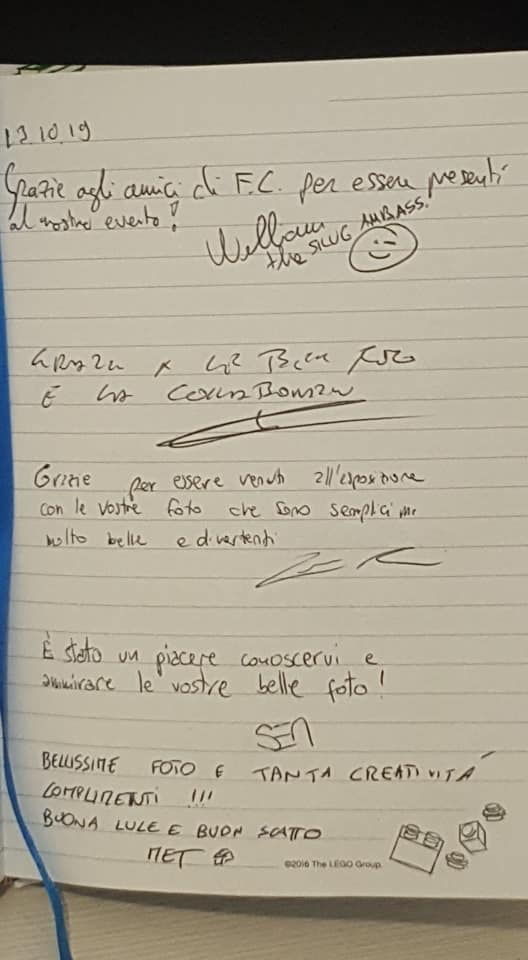 13.10.19
Grazie agli amici di F.C. per essere presenti
al nostro evento!
William
the SILUG AMBASS.
GRAZIE X LE BELLE FOTO
E LA
Grazie per essere venuti all'esposizione
con le vostre foto che sono semplici ma
molto belle e divertenti
È stato un piacere conoscervi e
ammirare le vostre belle foto!
SEM
BELLISSIME FOTO E TANTA CREATIVITÁ
COMPLIMENTI !!!
BUONA LUCE E BUON SCATTO
MET
©2016 The LEGO Group.